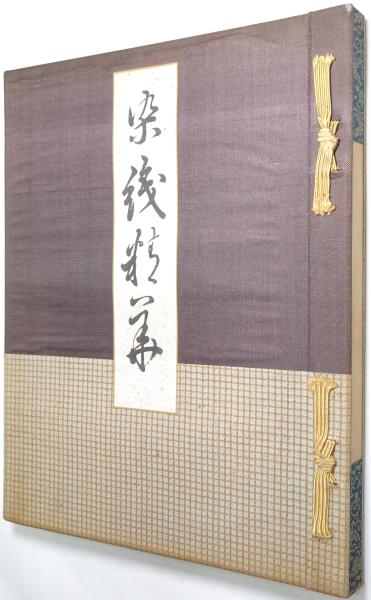 染織精華